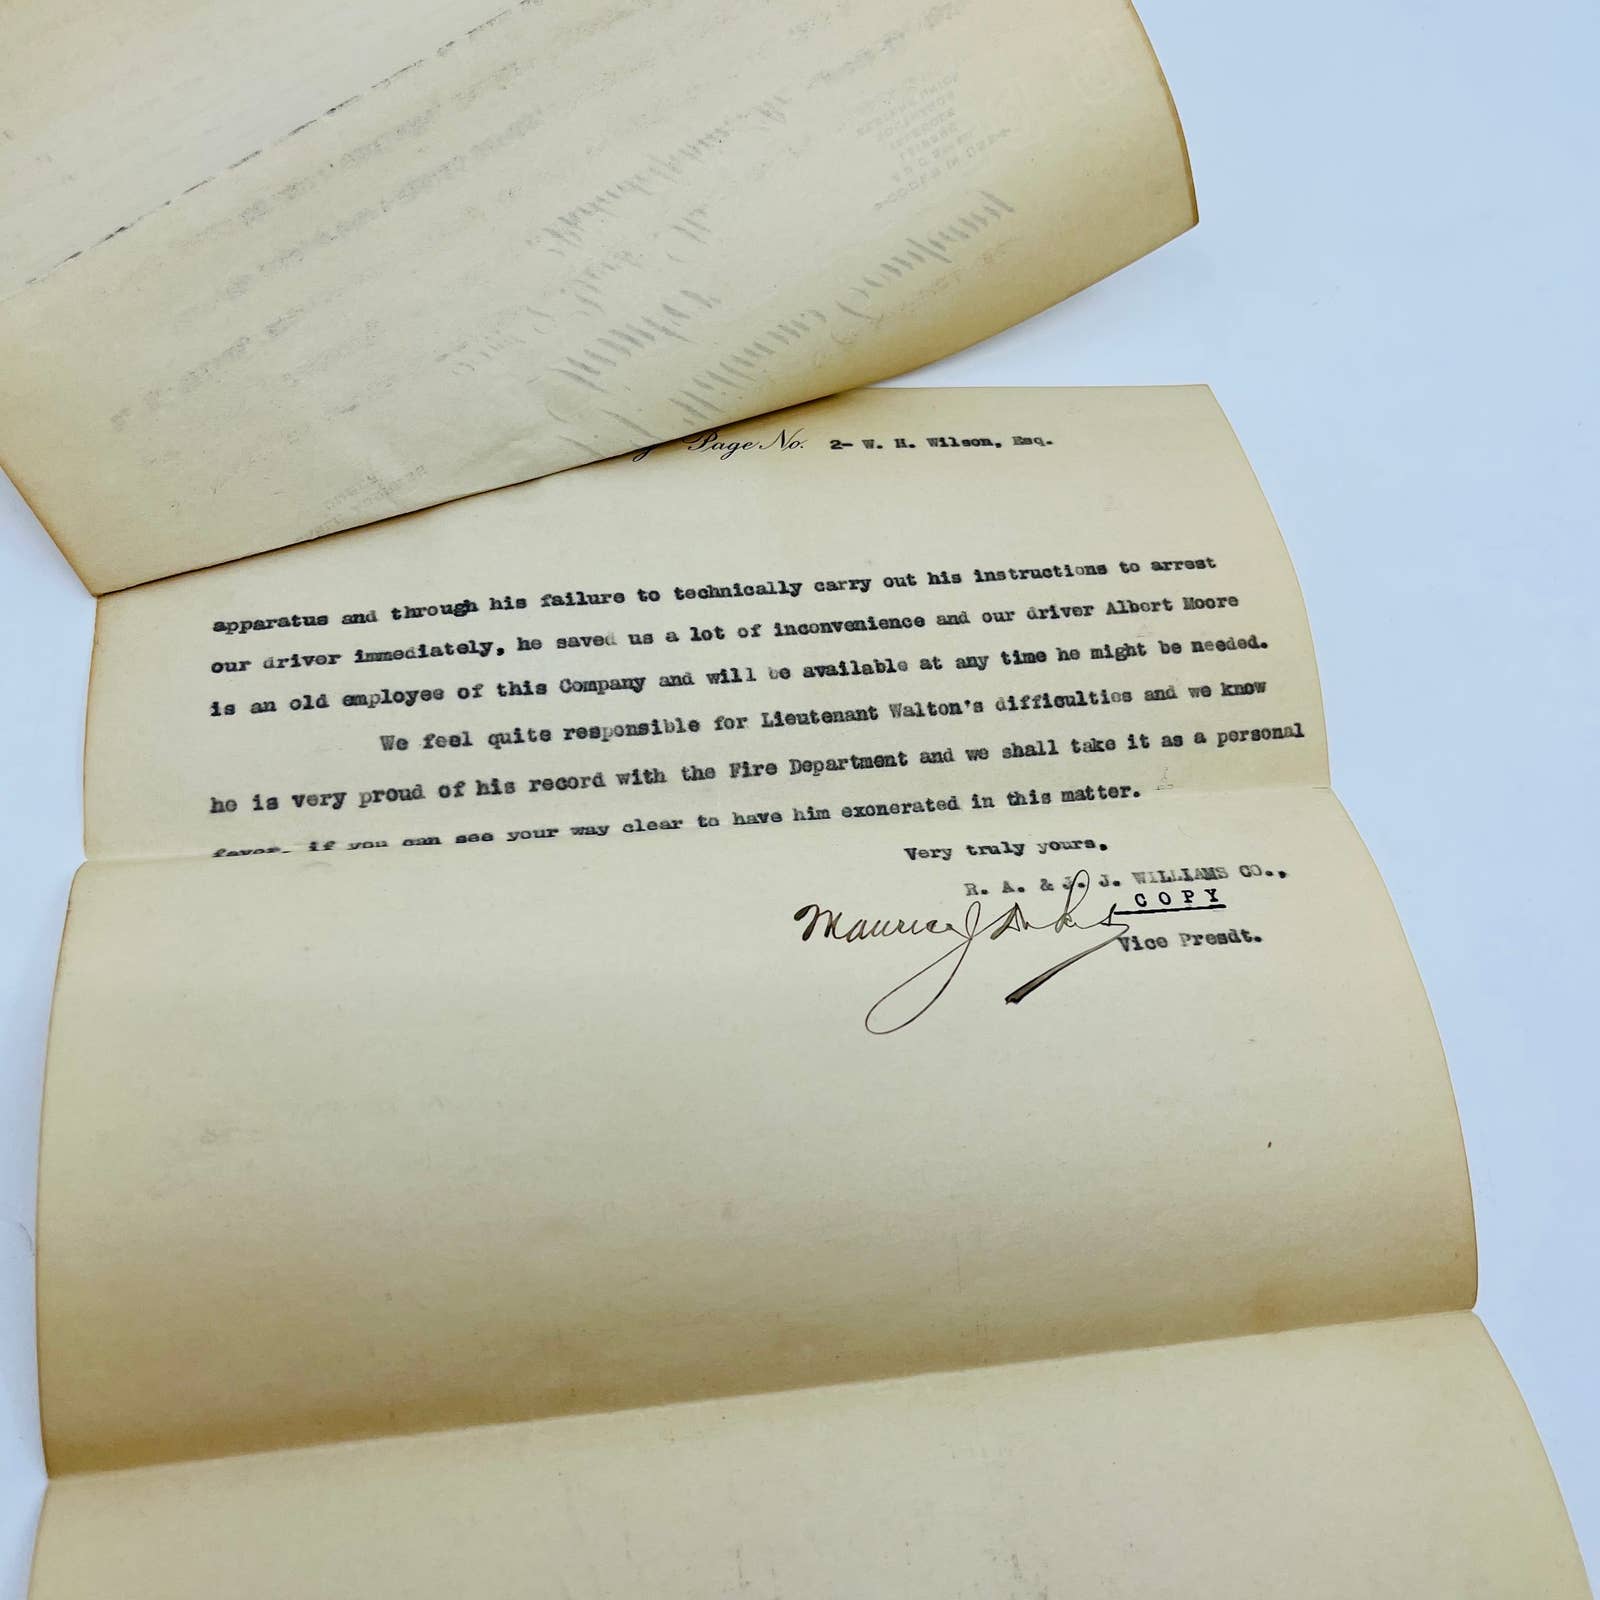 Page No. 2- W. H. Wilson, Esq.
apparatus and through his failure to technically carry out his instructions to arrest
our driver immediately, he saved us a lot of inconvenience and our driver Albert Moore
is an old employee of this Company and will be available at any time he might be needed.
We feel quite responsible for Lieutenant Walton's difficulties and we know
he is very proud of his record with the Fire Department and we shall take it as a personal
favor, if you can see your way clear to have him exonerated in this matter.
Very truly yours,
R. A. & J. J. WILLIAMS CO.,
COPY
Maurice J
Vice Presdt.